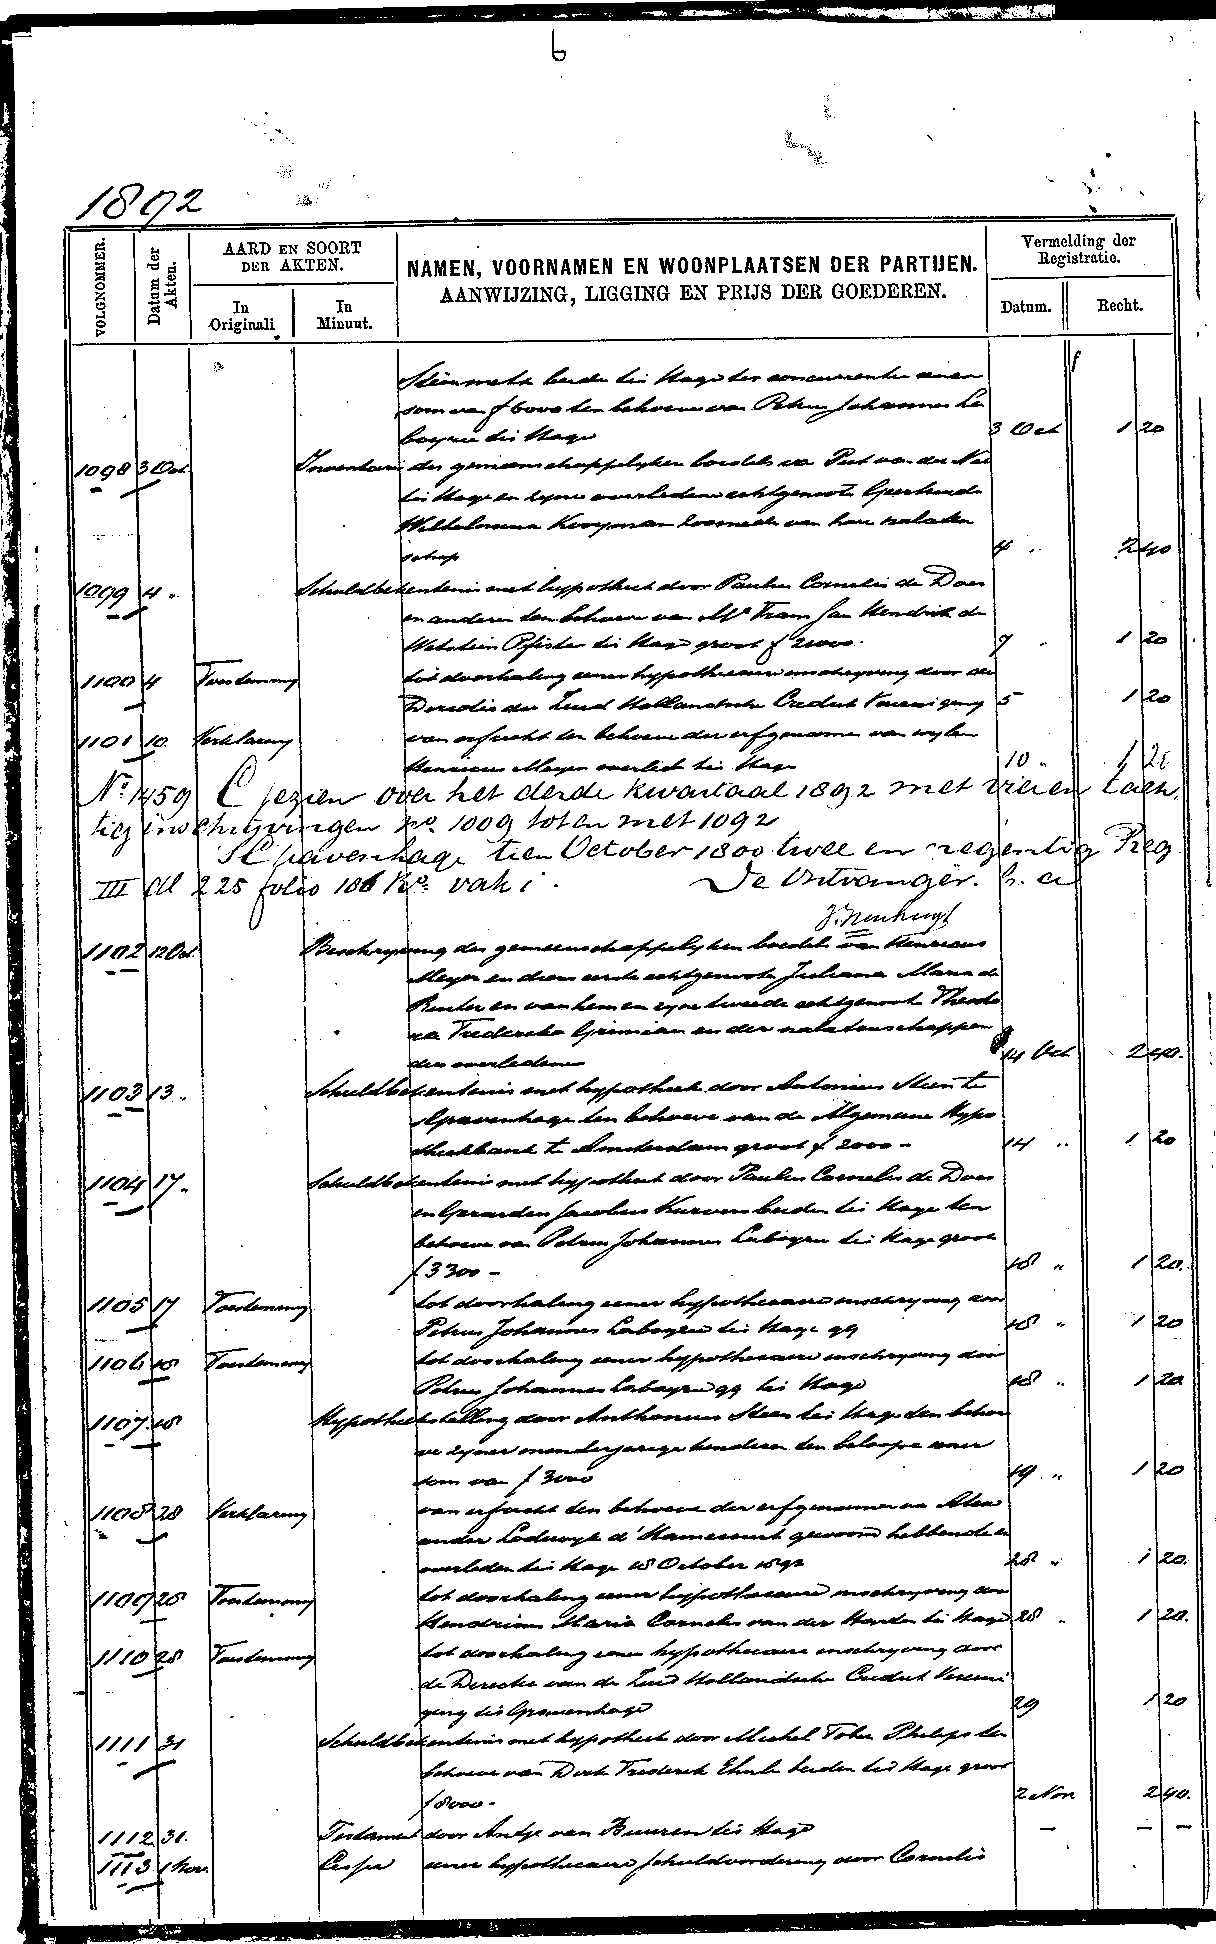 6
1892
VOLGNOMMER.
Datum der Akten.
AARD EN SOORT
DER AKTEN.
In Originali
In Minuut.
NAMEN, VOORNAMEN EN WOONPLAATSEN DER PARTIJEN.
AANWIJZING, LIGGING EN PRIJS DER GOEDEREN.
Vermelding der Registratie.
Datum.
Recht.
f
Steinmetz beiden te's Hage ter concurrentie eener
som van f 6000 ten behoeve van Petrus Johannes La
bayrie te's Hage 3 Oct 1 20
1098 3 Oct. Inventaris der gemeenschappelijken boedels van Piet van der
te's Hage en zijne overledene echtgenoote Geertruida
Wilhelmina Kooyman alsmede van hare nalaten
schap 4 " 2 40
1099 4 " Schuldbekentenis met hypotheek door Paulus Cornelis de Does
en anderen ten behoeve van Mr Frans Jan Hendrik de
Wetstein Pfister te's Hage groot f 21000. 7 " 1 20
1100 4 Toestemming tot doorhaling eener hypothecaire inschrijving door de
Directie der Zuid Hollandsche Crediet Vereeniging 5 1 20
1101 10. Verklaring van erfrecht ten behoeve der erfgenamen van wijlen
Henricus Meyer overleden te's Hage 10 " 1 20
No. 1459 Gezien over het derde kwartaal 1892 met vier en tach
tig inschrijvingen no. 1009 tot en met 1092
's Gravenhage tien October 1800 twee en negentig Reg
III dl 225 folio 106 Ro. vak 1. De Ontvanger.
1102 12 Oct. Beschrijving der gemeenschappelijken boedels van Henricus
Meyer en diens eerste echtgenoote Juliana Maria de
Ruiter en van hem en zijne tweede echtgenoote Theodo
ra Frederika Grimian en der nalatenschappen
der overledenen 14 Oct 2 40.
1103 13 " Schuldbekentenis met hypotheek door Antonius Steen te
's Gravenhage ten behoeve van de Algemeene Hypo
theekbank te Amsterdam groot f 2000 - 14 " 1 20
1104 17 " Schuldbekentenis met hypotheek door Paulus Cornelis de Does
en Gerardus Jacobus Kurvers beiden te's Hage ten
behoeve van Petrus Johannes Labayrie te's Hage groot
f 3300 - 18 " 1 20.
1105 17 Toestemming tot doorhaling eener hypothecaire inschrijving door
Petrus Johannes Labayrie te's Hage qq 18 " 1 20
1106 18 Toestemming tot doorhaling eener hypothecaire inschrijving door
Petrus Johannes Labayrie qq te's Hage 18 " 1 20
1107 18 Hypotheekstelling door Anthonius Steen te's Hage ten behoe
ve zijner minderjarige kinderen ten beloope eener
som van f 3000 19 " 1 20
1108 28 Verklaring van erfrecht ten behoeve der erfgenamen van Alex
ander Lodewijk d'Hamecourt gewoond hebbende en
overleden te's Hage 18 October 1892 28 " 1 20.
1109 28 Toestemming tot doorhaling eener hypothecaire inschrijving door
Hendrina Maria Cornelis van der Harden te's Hage 28 " 1 20.
1110 28 Toestemming tot doorhaling eener hypothecaire inschrijving door
de Directie van de Zuid Hollandsche Crediet Vereeni
ging te's Gravenhage 29 1 20
1111 31 Schuldbekentenis met hypotheek door Michel Philips ten
behoeve van Dirk Frederik beiden te's Hage groot
f 8000 - 2 Nov 2 40.
1112 31. Testament door Antje van Buuren te's Hage - - -
1113 1 Nov. Cessie eener hypothecaire schuldvordering door Cornelis